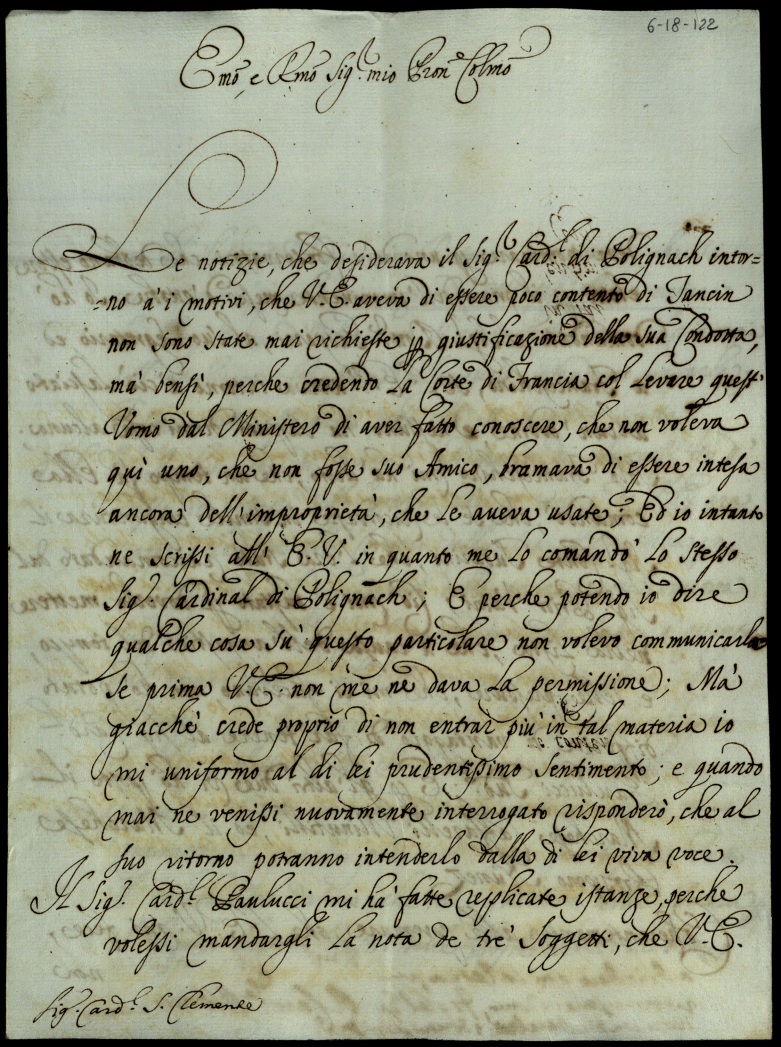 6-18-122
Emo, e Rmo Sig.r mio Pron.e Colmo
Le notizie, che desiderava il Sig.r Card.l di Polignach intor=
=no à i motivi, che V.E. aveva di essere poco contento di Tancin
non sono state mai richieste in giustificazione della sua Condotta,
mà bensì, perche credendo la Corte di Francia col levare quest'
Uomo dal Ministero di aver fatto conoscere, che non voleva
quì uno, che non fosse suo Amico, bramava di essere intesa
ancora dell'improprietà, che le aveva usate; Ed io intanto
ne scrissi all' E.V. in quanto me lo comandò lo stesso
Sig.r Cardinal di Polignach; E perche potendo io dire
qualche cosa sù questo particolare non volevo communicarla
se prima V.E. non me ne dava la permissione; Mà
giacchè crede proprio di non entrar più in tal materia io
mi uniformo al di lei prudentissimo sentimento; e quando
mai ne venissi nuovamente interrogato risponderò, che al
suo ritorno potranno intenderlo dalla di lei viva voce.
Il Sig.r Card.l Paulucci mi hà fatte replicate istanze, perche
volessi mandargli la nota de trè soggetti, che V.E.
Sig.r Card.l S. Clemente